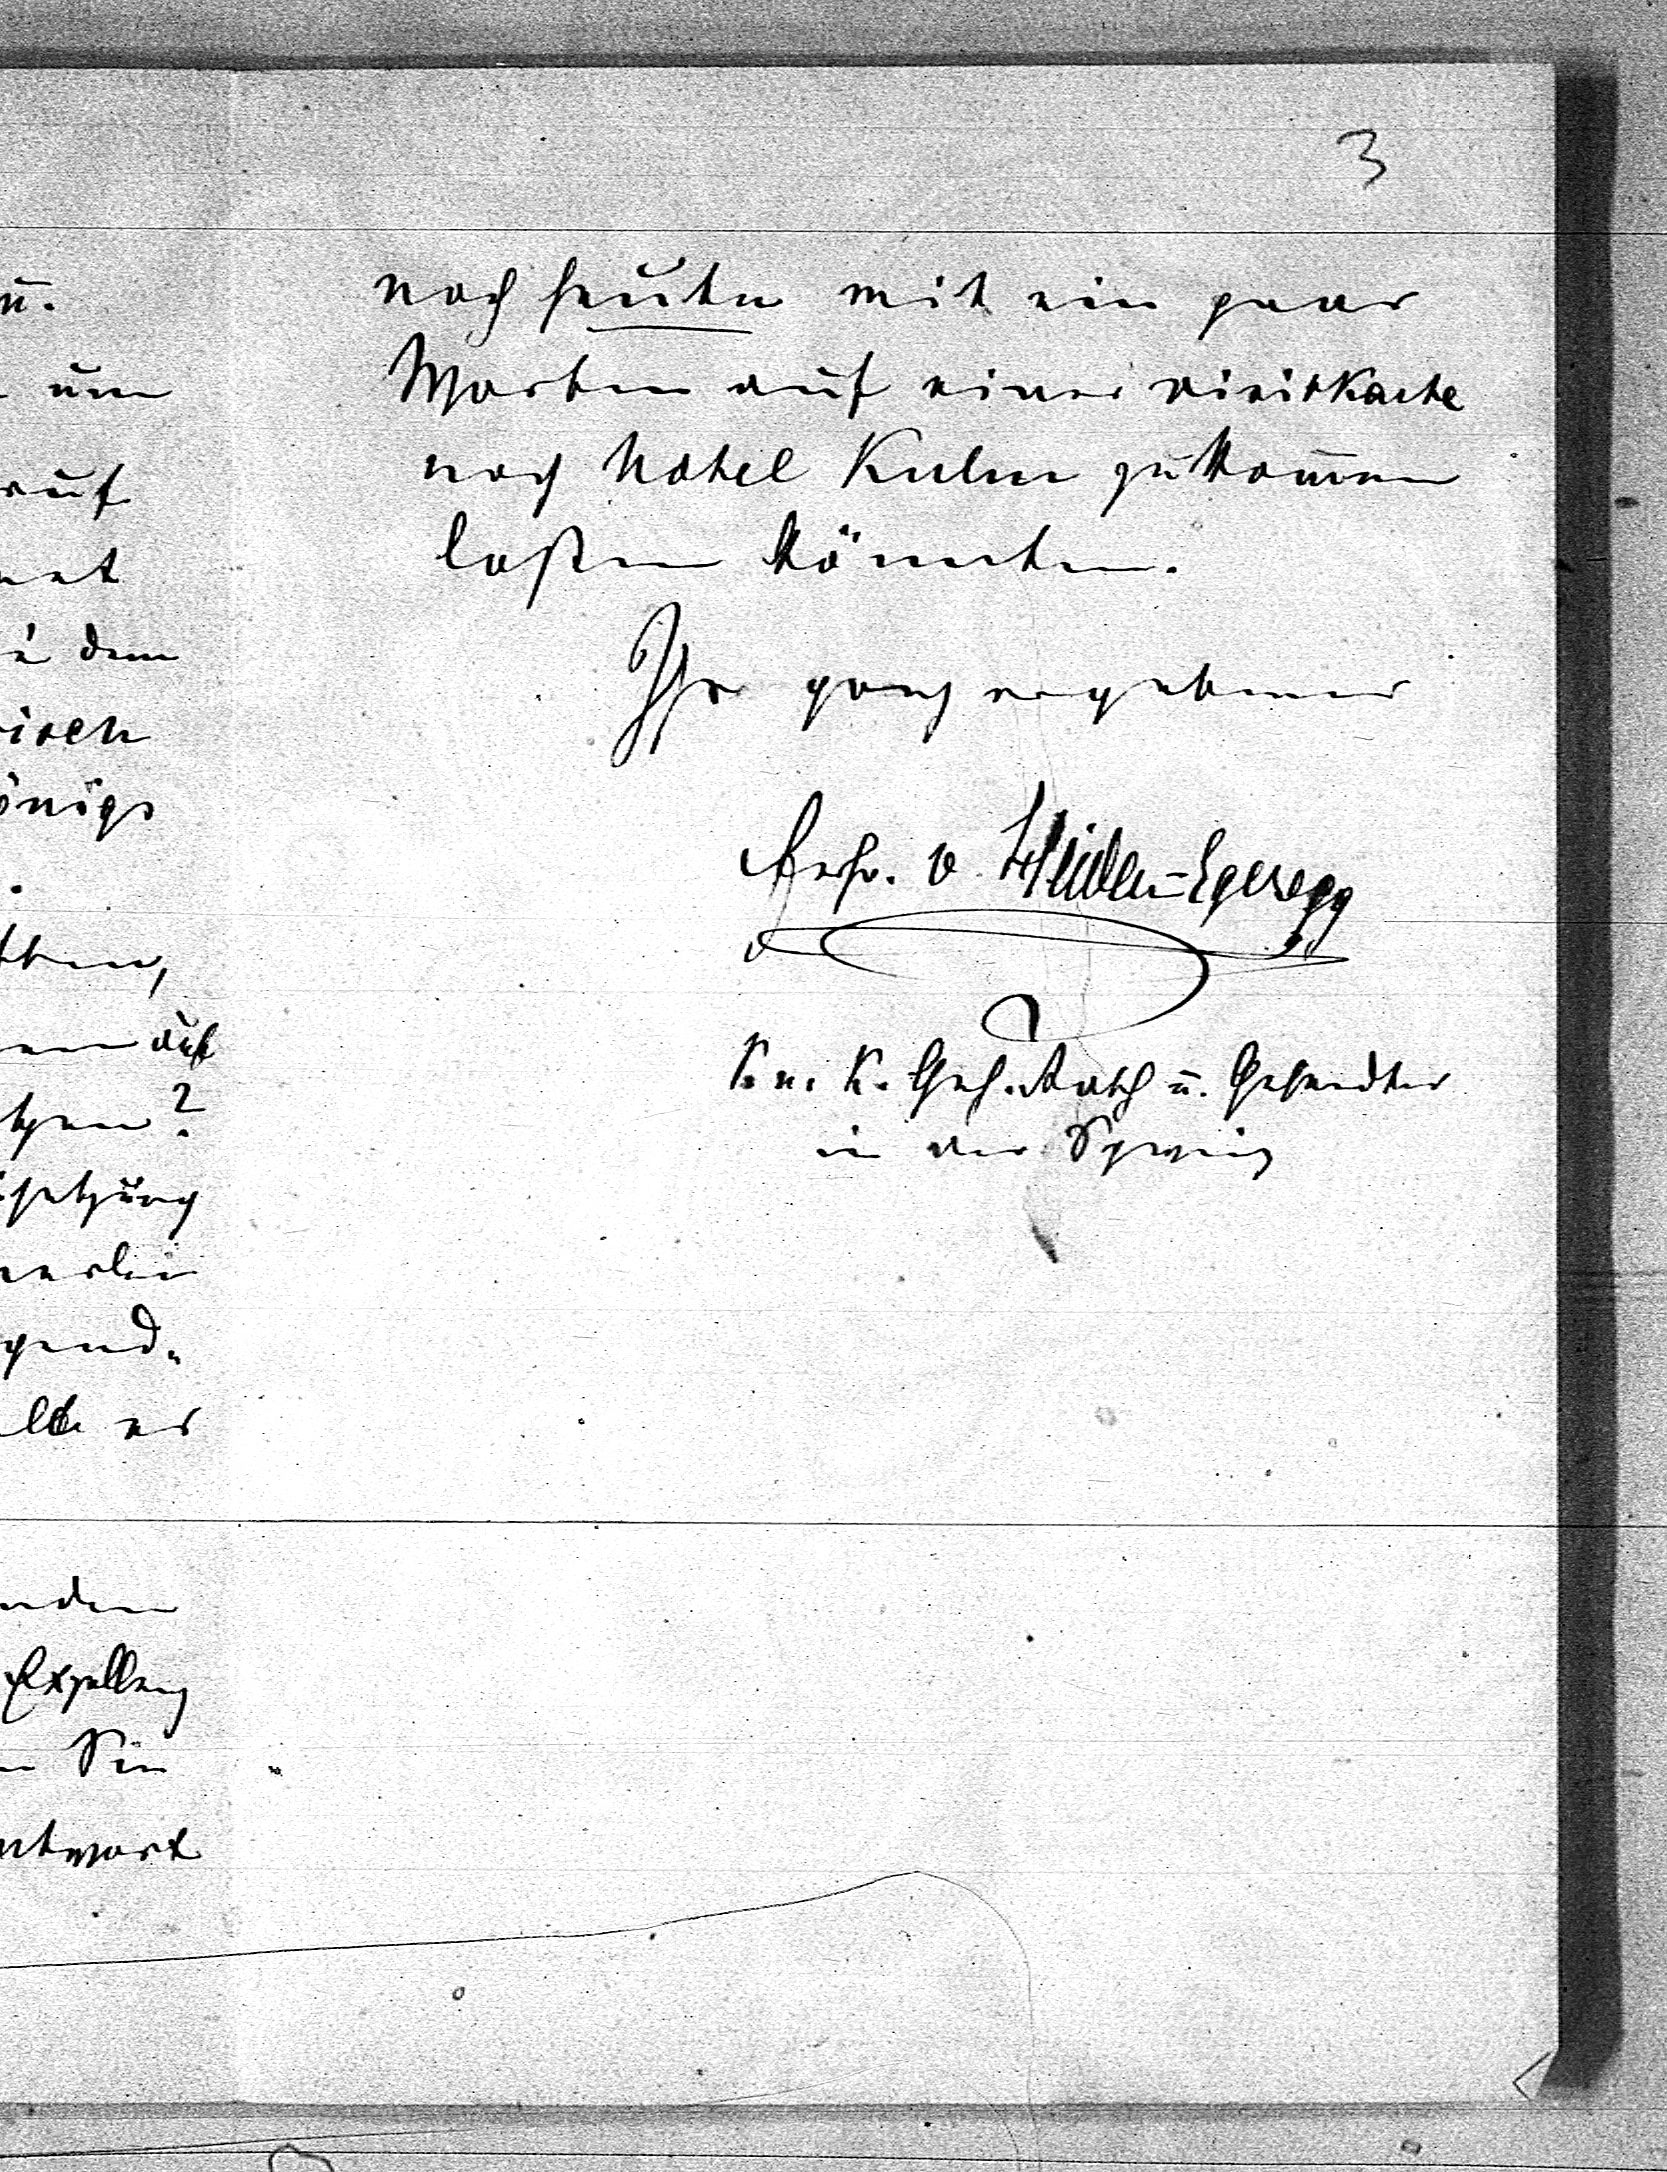 3
noch heute mit ein paar
Worten auf einer visitkarte
nach Hotel Kulm zukom̄en
laßen könnten.
Ihr ganz ergebener
Frhr. v. Heidler-Egeregg
K. u. K. Geh. Rath u. Gesandter
in der Schweiz
u.
um
auf
dem
isch
önigs
tten,
auf
tzen?
setzung
gend.
es
nden
Expellenz
Sie
ntwort